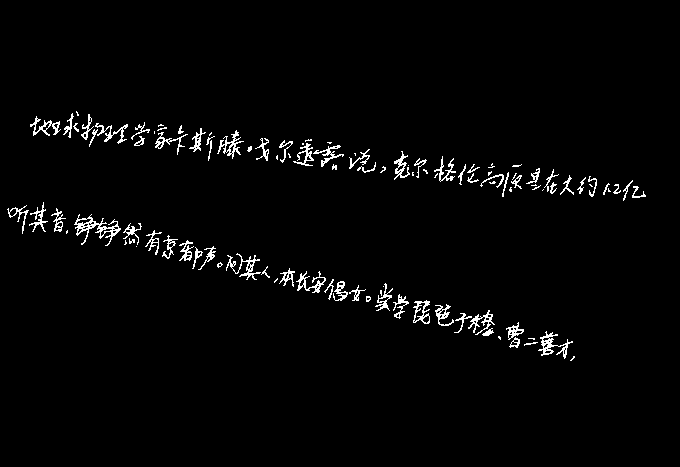 地球物理学家卡斯滕。戈尔透露说,克尔格伦高原是在大约1.2亿
听其音,铮铮然有京都声。问其人,本长安倡女。尝学琵琶于穆、曹二善才,